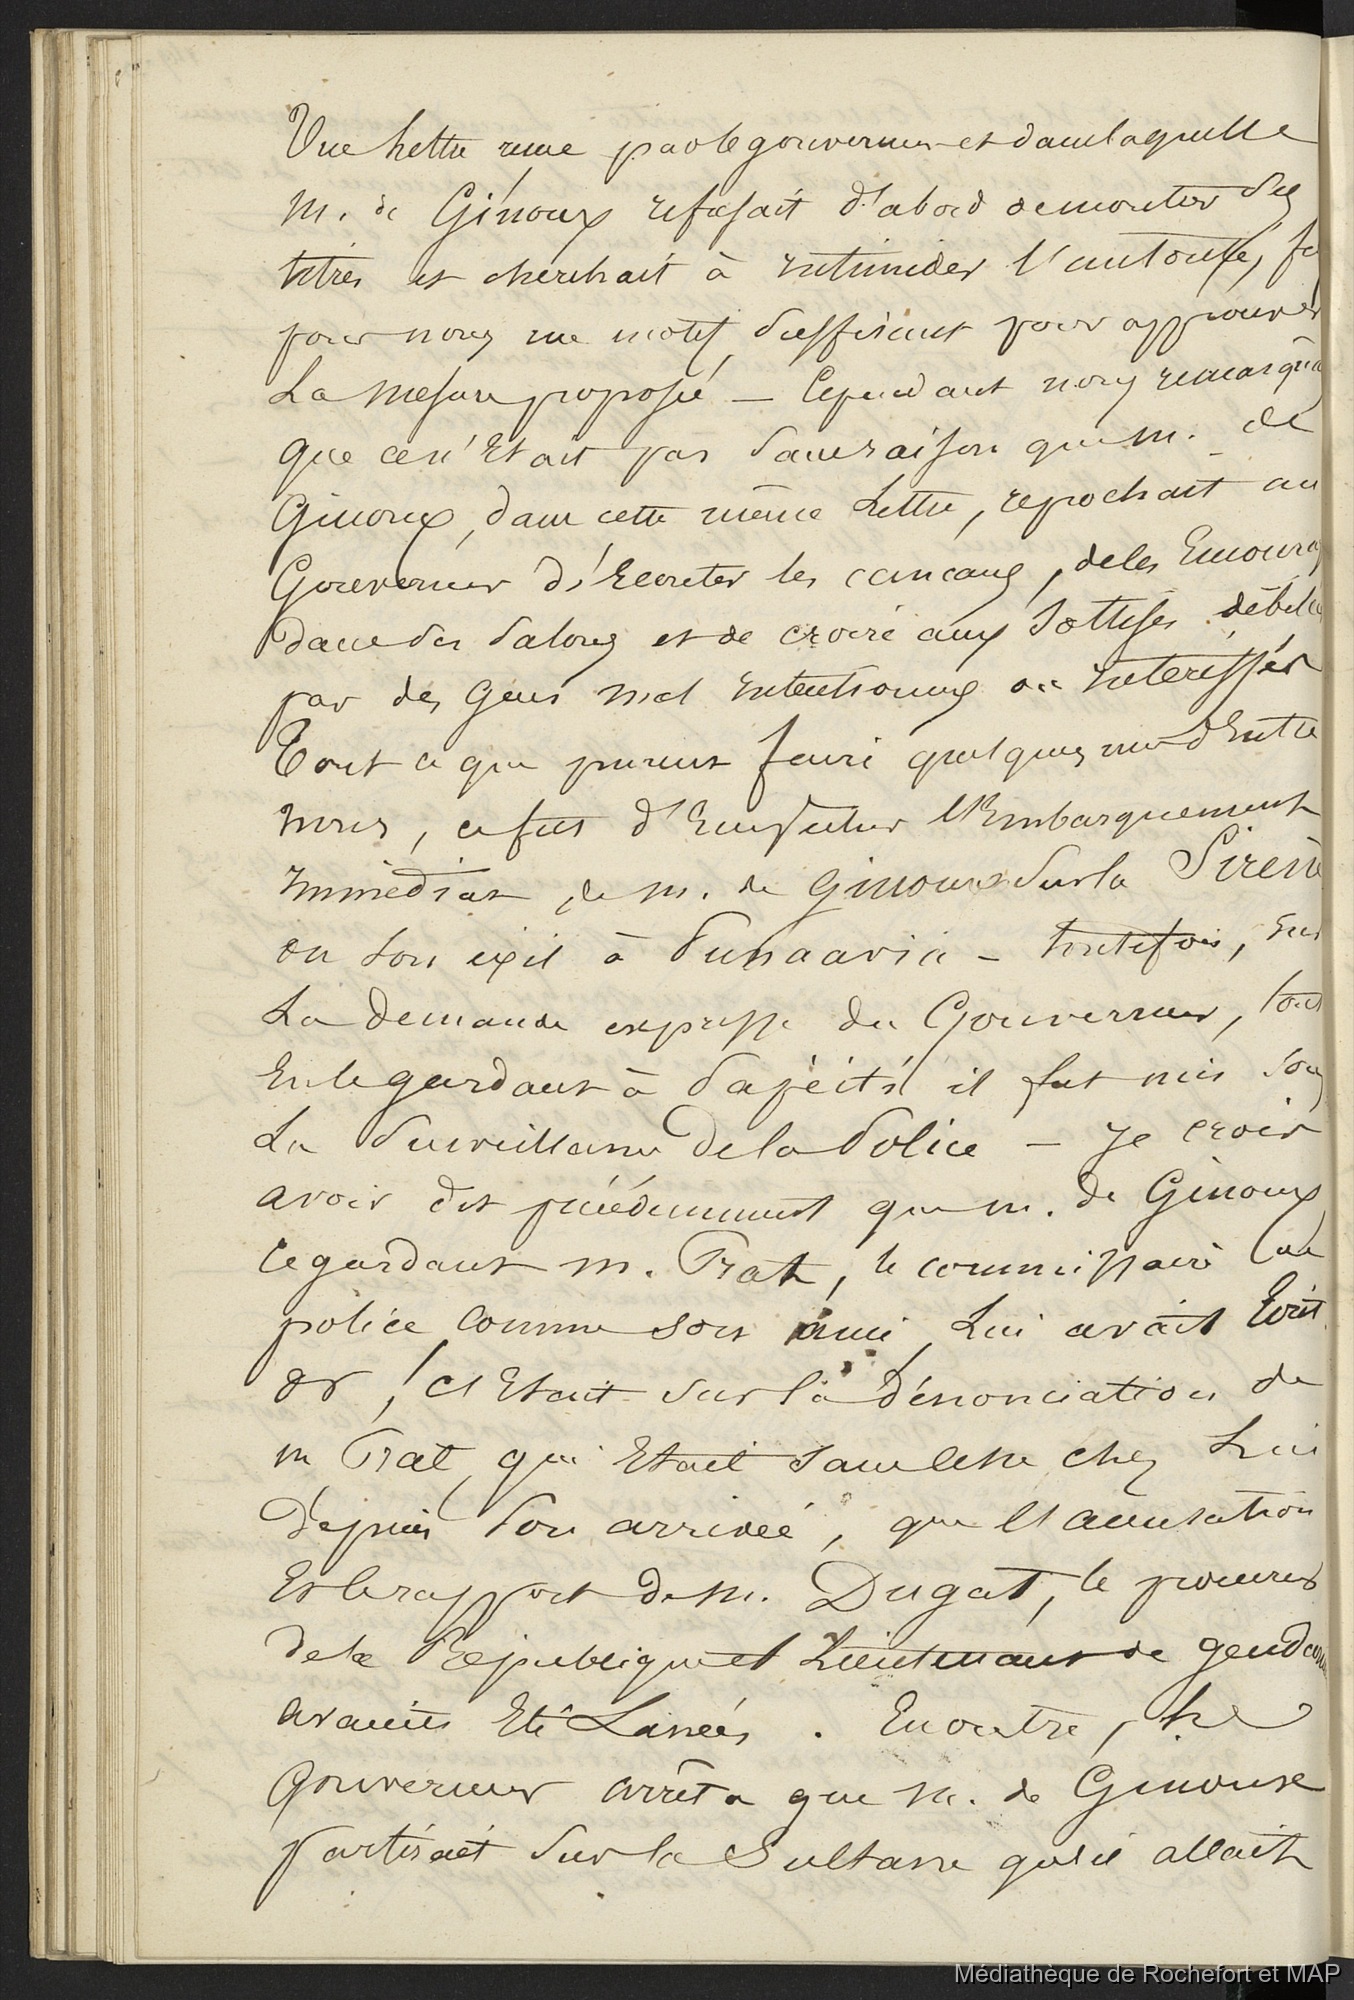 Une lettre reçue par le gouverneur et dans laquelle
M. de Ginoux refusait d'abord de montrer ses
titres et cherchait à intimider l'autorité, fu
pour nous un motif suffisant pour approuver
La mesure proposée – Cependant nous remarquâ
que ce n'Etait pas sans raison que M. de
Ginoux, dans cette même Lettre, reprochait au
Gouverneur d'Ecouter les cancans, de les Encourag
dans ses salons et de croire aux sottises débitées
par des gens mal intentionnés ou intéressés
Tout ce que purent faire quelques uns d'Entre
nous, ce fut d' l'Embarquement
immédiat de M. de Ginoux sur la Sirène
ou son exil à Punaavia – toutefois, sur
La demande expresse du Gouverneur, tout
En le gardant à Papéiti il fut mis sous
La Surveillance de la Police – Je crois
avoir dit précédemment que M. de Ginoux
regardant M. Prat, le commissaire de
police comme son ami, Lui avait Ecrit
or, c'Etait sur la dénonciation de
M Prat, qui Etait sans cesse chez Lui
depuis son arrivée, que l'accusation
Et le rapport de M. Dugat, le procureur
de la République et Lieutenant de gendarm
avaient Eté Lancés. En outre, Le
Gouverneur arrêta que M. de Ginoux
partirait sur la Sultane qu'il allait
Médiathèque de Rochefort et MAP